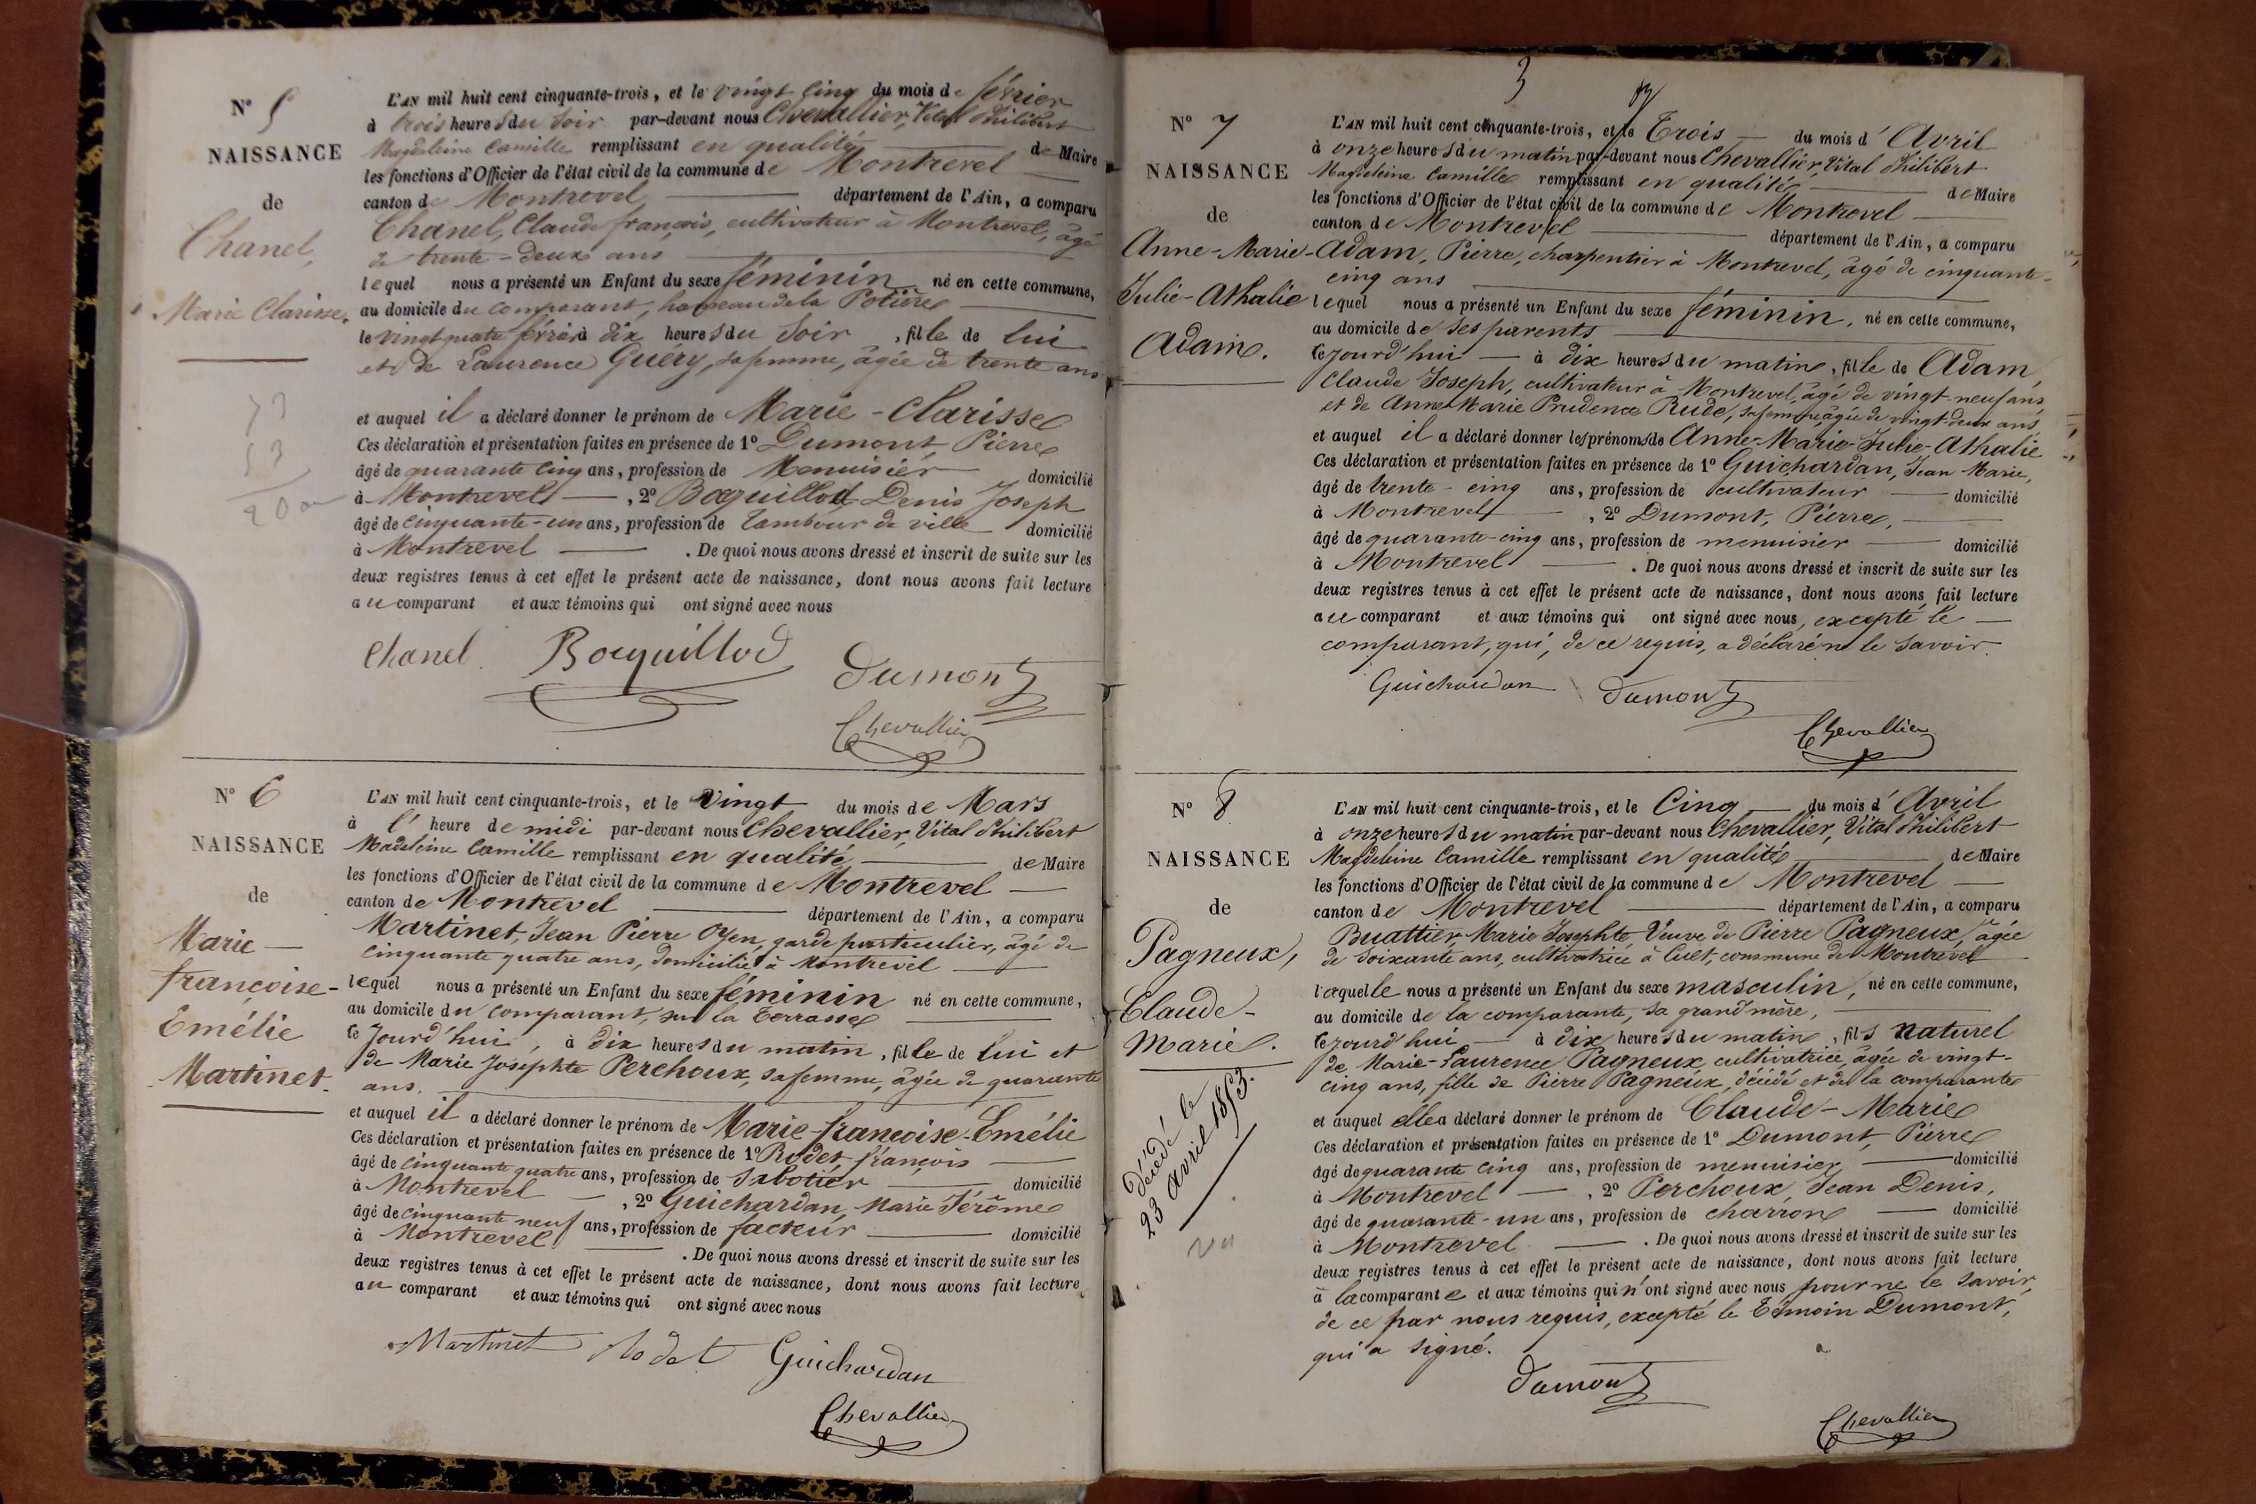 N° 5
NAISSANCE
de
Chanel,
Marie Clarisse.
L'AN mil huit cent cinquante-trois, et le vingt cinq du mois de février
à trois heures du soir par-devant nous Chevallier, Vital Philibert
Magdeleine Camille remplissant en qualité de Maire
les fonctions d'Officier de l'état civil de la commune de Montrevel
canton de Montrevel département de l'Ain, a comparu
Chanel, Claude françois, cultivateur à Montrevel, âgé
de trente-deux ans
lequel nous a présenté un Enfant du sexe féminin né en cette commune,
au domicile du comparant, hameau de la Potière
le vingt quatre février à dix heures du soir, fille de lui
et de Laurence Guéry, sa femme, âgée de trente ans
et auquel il a déclaré donner le prénom de Marie-Clarisse
Ces déclaration et présentation faites en présence de 1° Dumont Pierre
âgé de quarante cinq ans, profession de Menuisier domicilié
à Montrevel, 2° Bocquillod Denis Joseph
âgé de cinquante-un ans, profession de tambour de ville domicilié
à Montrevel. De quoi nous avons dressé et inscrit de suite sur les
deux registres tenus à cet effet le présent acte de naissance, dont nous avons fait lecture
au comparant et aux témoins qui ont signé avec nous
Chanel Bocquillod Dumont
Chevallier
N° 6
NAISSANCE
de
Marie
françoise-
Emélie
Martinet.
L'AN mil huit cent cinquante-trois, et le Vingt du mois de Mars
à l' heure de midi par-devant nous Chevallier, Vital Philibert
Madeleine Camille remplissant en qualité de Maire
les fonctions d'Officier de l'état civil de la commune de Montrevel
canton de Montrevel département de l'Ain, a comparu
Martinet, Jean Pierre Oyen, garde particulier, âgé de
cinquante quatre ans, domicilié à Montrevel
lequel nous a présenté un Enfant du sexe féminin né en cette commune,
au domicile du comparant, sur la Terrasse
le jourd'hui, à dix heures du matin, fille de lui et
de Marie Josephte Perchoux, sa femme, âgée de quarante
ans.
et auquel il a déclaré donner le prénom de Marie-françoise-Emélie
Ces déclaration et présentation faites en présence de 1° Rodet françois
âgé de cinquante quatre ans, profession de Sabotier domicilié
à Montrevel, 2° Guichardan Marie Jérôme
âgé de cinquante neuf ans, profession de facteur domicilié
à Montrevel. De quoi nous avons dressé et inscrit de suite sur les
deux registres tenus à cet effet le présent acte de naissance, dont nous avons fait lecture
au comparant et aux témoins qui ont signé avec nous
Martinet Rodet Guichardan
Chevallier
3
N° 7
NAISSANCE
de
Anne-Marie-
Julie-Athalie
Adam.
L'AN mil huit cent cinquante-trois, et le Trois du mois d'Avril
à onze heures du matin par-devant nous Chevallier, Vital Philibert
Magdeleine Camille remplissant en qualité de Maire
les fonctions d'Officier de l'état civil de la commune de Montrevel
canton de Montrevel département de l'Ain, a comparu
Adam, Pierre, charpentier à Montrevel, âgé de cinquante-
cinq ans
lequel nous a présenté un Enfant du sexe féminin, né en cette commune,
au domicile de ses parents
le jourd'hui à dix heures du matin, fille de Adam
Claude Joseph, cultivateur à Montrevel, âgé de vingt-neuf ans,
et de Anne Marie Prudence Rude, sa femme, âgée de vingt-deux ans,
et auquel il a déclaré donner les prénoms de Anne-Marie-Julie-Athalie
Ces déclaration et présentation faites en présence de 1° Guichardan, Jean Marie,
âgé de trente-cinq ans, profession de cultivateur domicilié
à Montrevel, 2° Dumont, Pierre,
âgé de quarante-cinq ans, profession de menuisier domicilié
à Montrevel. De quoi nous avons dressé et inscrit de suite sur les
deux registres tenus à cet effet le présent acte de naissance, dont nous avons fait lecture
au comparant et aux témoins qui ont signé avec nous, excepté le
comparant, qui, de ce requis, a déclaré ne le savoir.
Guichardan Dumont
Chevallier
N° 8
NAISSANCE
de
Pagneux,
Claude-
Marie.
décédé le
23 avril 1853.
vu
L'AN mil huit cent cinquante-trois, et le Cinq du mois d'Avril
à onze heures du matin par-devant nous Chevallier, Vital Philibert
Magdeleine Camille remplissant en qualité de Maire
les fonctions d'Officier de l'état civil de la commune de Montrevel
canton de Montrevel département de l'Ain, a comparu
Buattier, Marie Josephte Veuve de Pierre Pagneux, âgée
de soixante ans, cultivatrice à Cuet, commune de Montrevel
laquelle nous a présenté un Enfant du sexe masculin, né en cette commune,
au domicile de la comparante, sa grand'mère,
le jourd'hui à dix heures du matin, fils naturel
de Marie-Laurence Pagneux, cultivatrice, âgée de vingt-
cinq ans, fille de Pierre Pagneux, décédé et de la comparante
et auquel elle a déclaré donner le prénom de Claude-Marie
Ces déclaration et présentation faites en présence de 1° Dumont, Pierre
âgé de quarante cinq ans, profession de menuisier domicilié
à Montrevel, 2° Perchoux, Jean Denis,
âgé de quarante-un ans, profession de charron domicilié
à Montrevel. De quoi nous avons dressé et inscrit de suite sur les
deux registres tenus à cet effet le présent acte de naissance, dont nous avons fait lecture
à la comparante et aux témoins qui n'ont signé avec nous pour ne le savoir,
de ce par nous requis, excepté le Témoin Dumont,
qui a signé.
Dumont
Chevallier